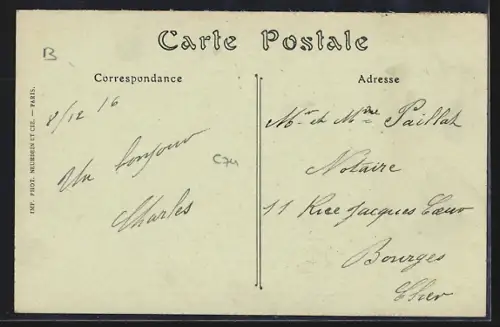 B
Carte Postale
Correspondance
Adresse
IMP. PHOT. NEURDEIN ET CIE. — PARIS.
8/12 16
Un bonjour
Charles
C74
Mr et Mme Paillat
Notaire
11 Rue Jacques Cœur
Bourges
Cher